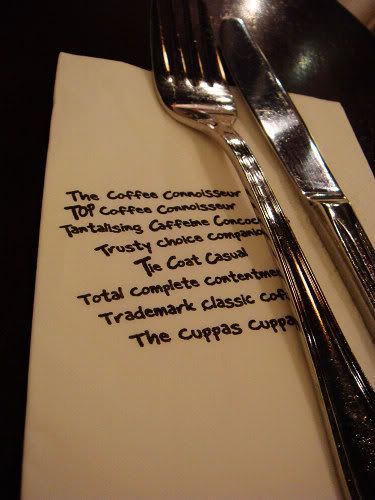 The Coffee Connoisseur
TOP Coffee Connoisseur
Tantalising Caffeine Concoc
Trusty choice companion
Tie Coat Casual
Total complete contentme
Trademark classic coff
The cuppas cuppa